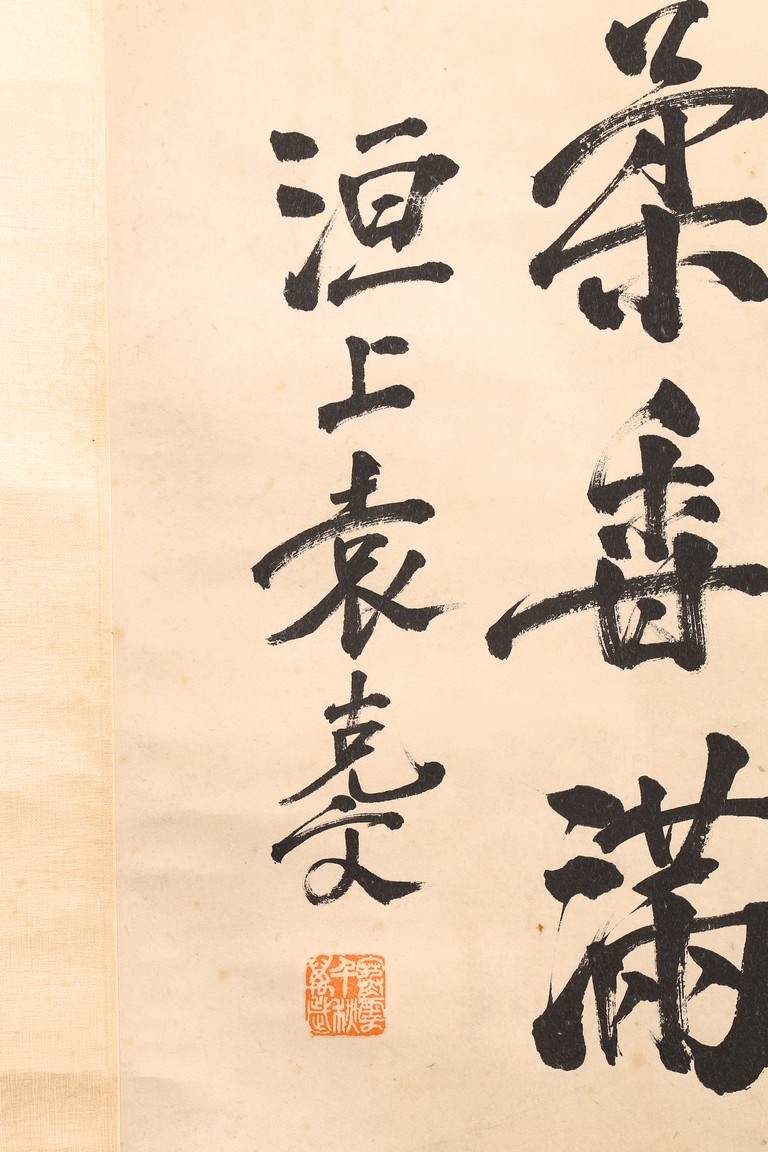 柔香滿
洹上袁克文